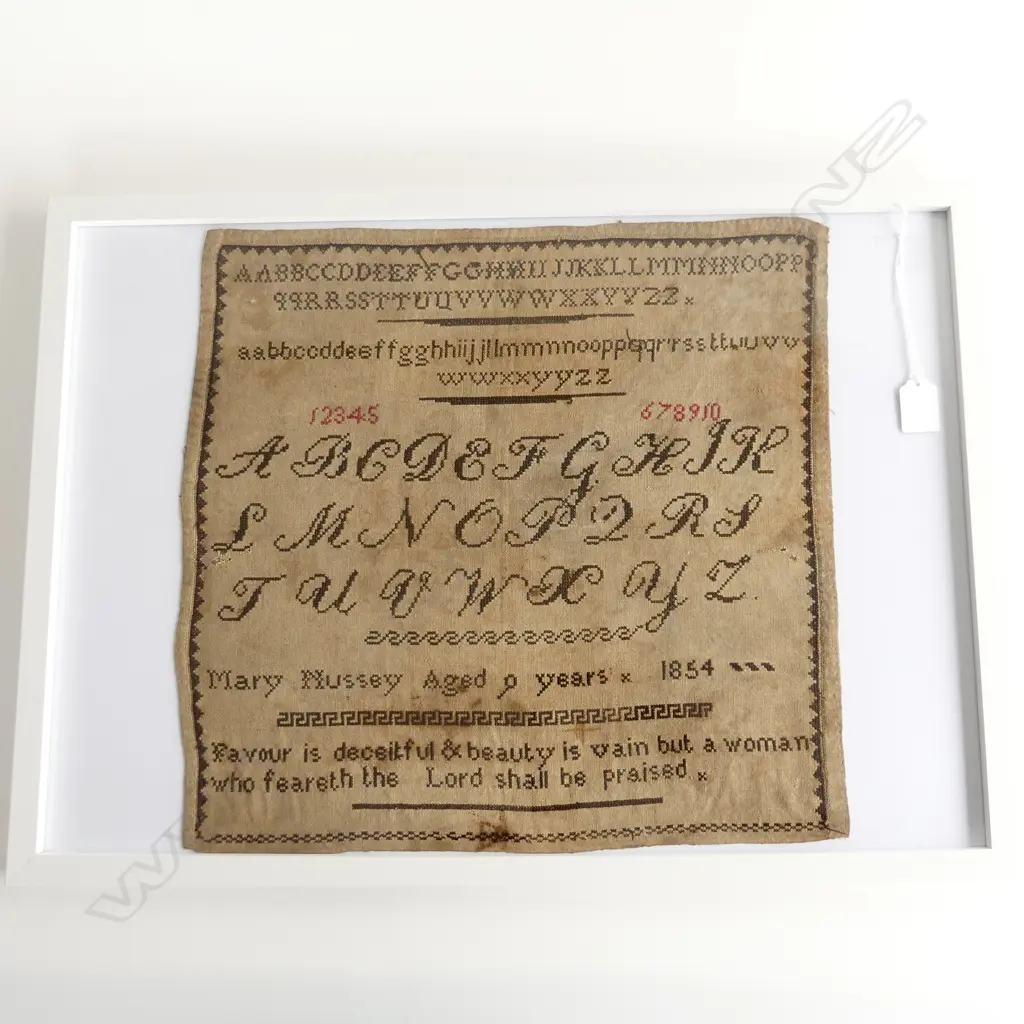 AABBCCDDEEFFGGHHIIJJKKLLMMNNOOPP
qqRRSSTTUUVVWWXXYYZZ x
aabbccddeeffgghhiijjllmmnnooppqqrrssttuuvv
wwxxyyzz
12345 678910
ABCDEFGHIJK
LMNOPQRS
TUVWXYZ.
Mary Nussey Aged 9 years x 1854
Favour is deceitful & beauty is vain but a woman
who feareth the Lord shall be praised x